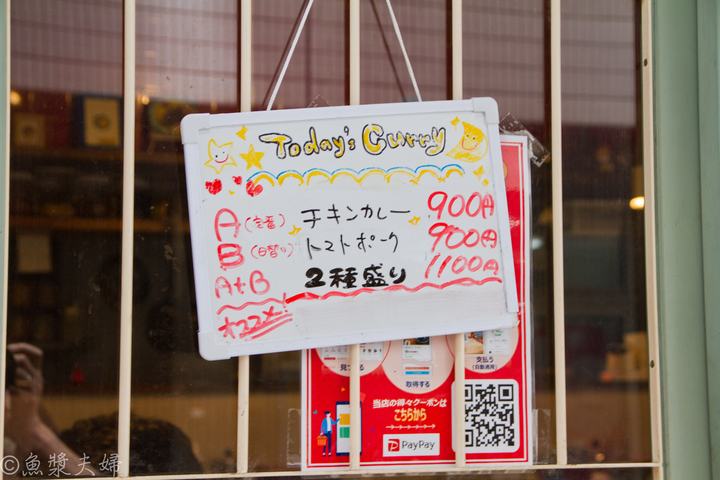 Today's Curry
A (定番) チキンカレー 900円
B (日替り) トマトポーク 900円
A+B 2種盛り 1100円
オススメ!
見つける
取得する
支払う
(自動適用)
当店の得々クーポンは
こちらから
PayPay
©魚漿夫婦